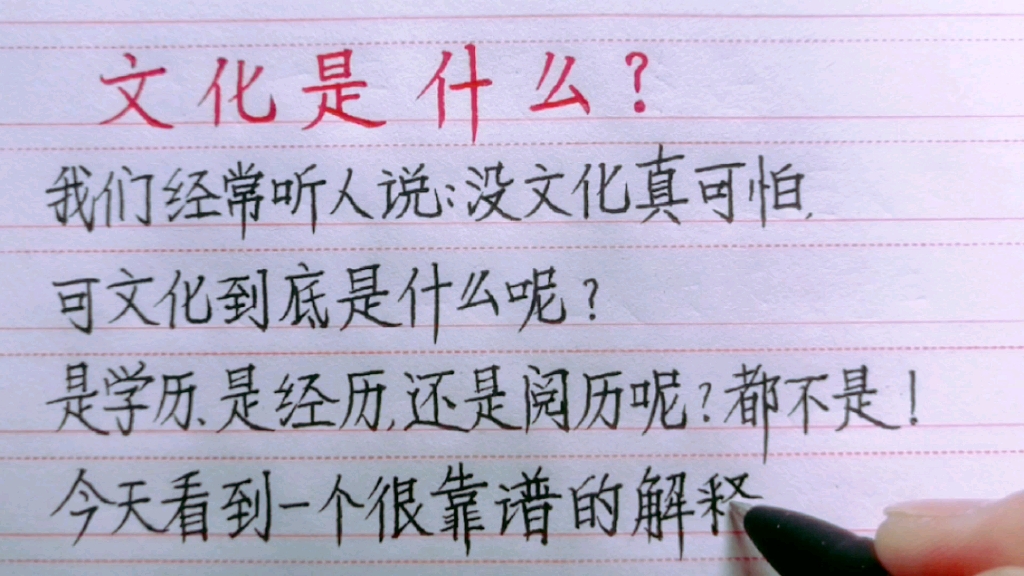 文化是什么？
我们经常听人说：没文化真可怕，
可文化到底是什么呢？
是学历、是经历，还是阅历呢？都不是！
今天看到一个很靠谱的解